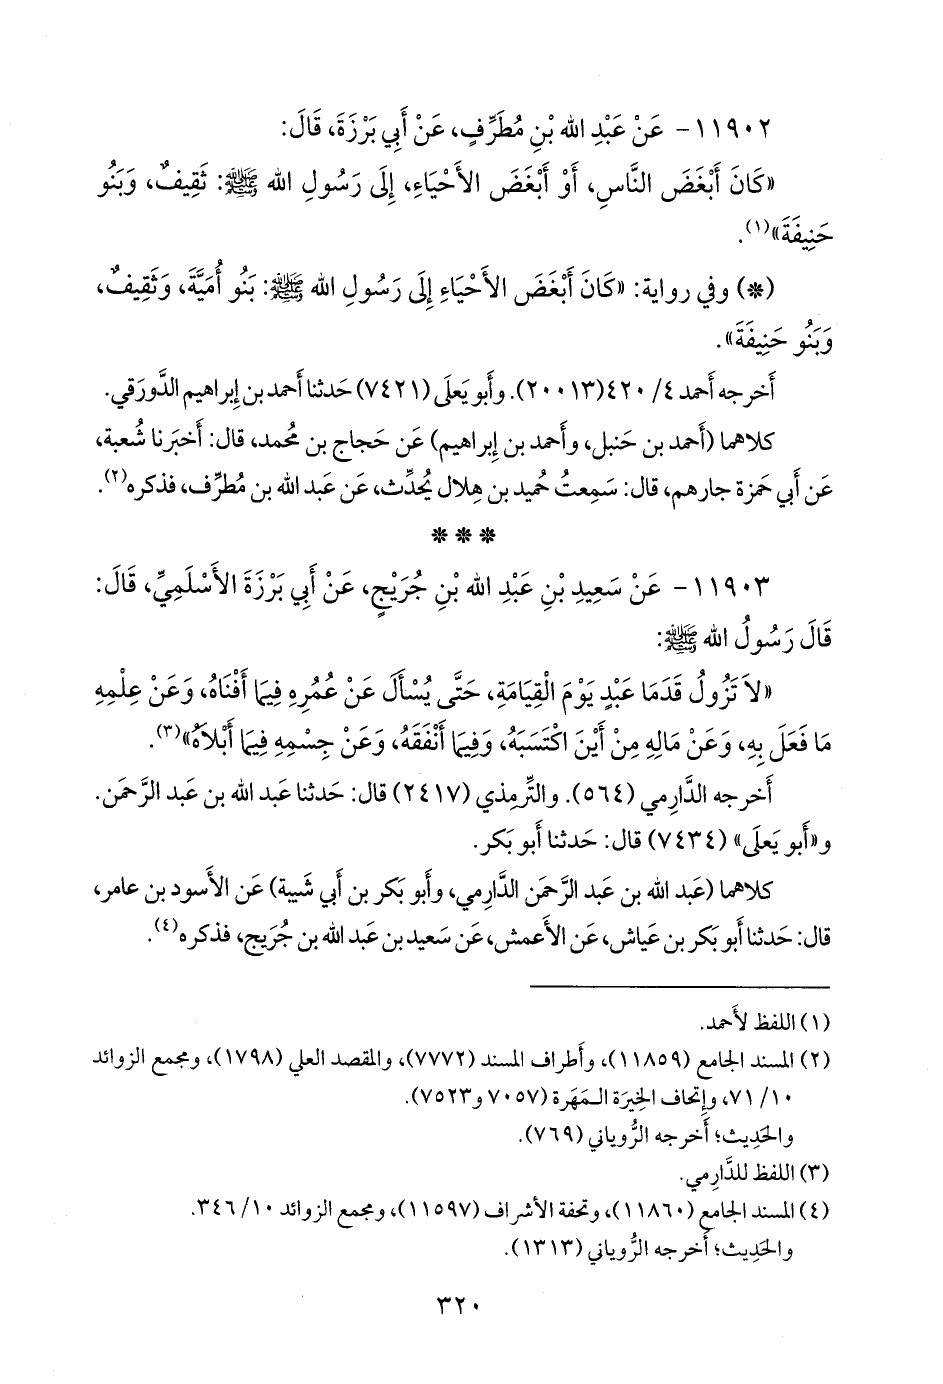 ١١٩٠٢- عَنْ عَبْدِ الله بْنِ مُطَرِّفٍ، عَنْ أَبِي بَرْزَةَ، قَالَ:
«كَانَ أَبْغَضَ النَّاسِ، أَوْ أَبْغَضَ الأَحْيَاءِ، إِلَى رَسُولِ الله ﷺ: ثَقِيفٌ، وَبَنُو
حَنِيفَةَ»(١).
(*) وفي رواية: «كَانَ أَبْغَضَ الأَحْيَاءِ إِلَى رَسُولِ الله ﷺ: بَنُو أُمَيَّةَ، وَثَقِيفٌ،
وَبَنُو حَنِيفَةَ».
أَخرجه أَحمد ٤/ ٤٢٠(٢٠٠١٣). وأَبو يَعلَى (٧٤٢١) حَدثنا أَحمد بن إِبراهيم الدَّورَقي.
كلاهما (أَحمد بن حَنبل، وأَحمد بن إِبراهيم) عَن حَجاج بن مُحمد، قال: أَخبَرنا شُعبة،
عَن أَبي حَمزة جارهم، قال: سَمِعتُ حُميد بن هِلال يُحدِّث، عَن عَبد الله بن مُطرِّف، فذكره(٢).
* * *
١١٩٠٣- عَنْ سَعِيدِ بْنِ عَبْدِ الله بْنِ جُرَيْجٍ، عَنْ أَبِي بَرْزَةَ الأَسْلَمِيِّ، قَالَ:
قَالَ رَسُولُ الله ﷺ:
«لاَ تَزُولُ قَدَمَا عَبْدٍ يَوْمَ الْقِيَامَةِ، حَتَّى يُسْأَلَ عَنْ عُمُرِهِ فِيمَا أَفْنَاهُ، وَعَنْ عِلْمِهِ
مَا فَعَلَ بِهِ، وَعَنْ مَالِهِ مِنْ أَيْنَ اكْتَسَبَهُ، وَفِيمَا أَنْفَقَهُ، وَعَنْ جِسْمِهِ فِيمَا أَبْلاَهُ»(٣).
أَخرجه الدَّارِمي (٥٦٤). والتِّرمِذي (٢٤١٧) قال: حَدثنا عَبد الله بن عَبد الرَّحمَن.
و«أَبو يَعلَى» (٧٤٣٤) قال: حَدثنا أَبو بَكر.
كلاهما (عَبد الله بن عَبد الرَّحمَن الدَّارِمي، وأَبو بَكر بن أَبي شَيبة) عَن الأَسود بن عامر،
قال: حَدثنا أَبو بَكر بن عَياش، عَن الأَعمش، عَن سَعيد بن عَبد الله بن جُرَيج، فذكره(٤).
(١) اللفظ لأَحمد.
(٢) المسند الجامع (١١٨٥٩)، وأَطراف المسند (٧٧٧٢)، والمقصد العلي (١٧٩٨)، ومجمع الزوائد
١٠/ ٧١، وإِتحاف الخِيرَة المَهَرة (٧٠٥٧ و٧٥٢٣).
والحَدِيث؛ أَخرجه الرُّوياني (٧٦٩).
(٣) اللفظ للدَّارِمي.
(٤) المسند الجامع (١١٨٦٠)، وتحفة الأشراف (١١٥٩٧)، ومجمع الزوائد ١٠/ ٣٤٦.
والحَدِيث؛ أَخرجه الرُّوياني (١٣١٣).
٣٢٠